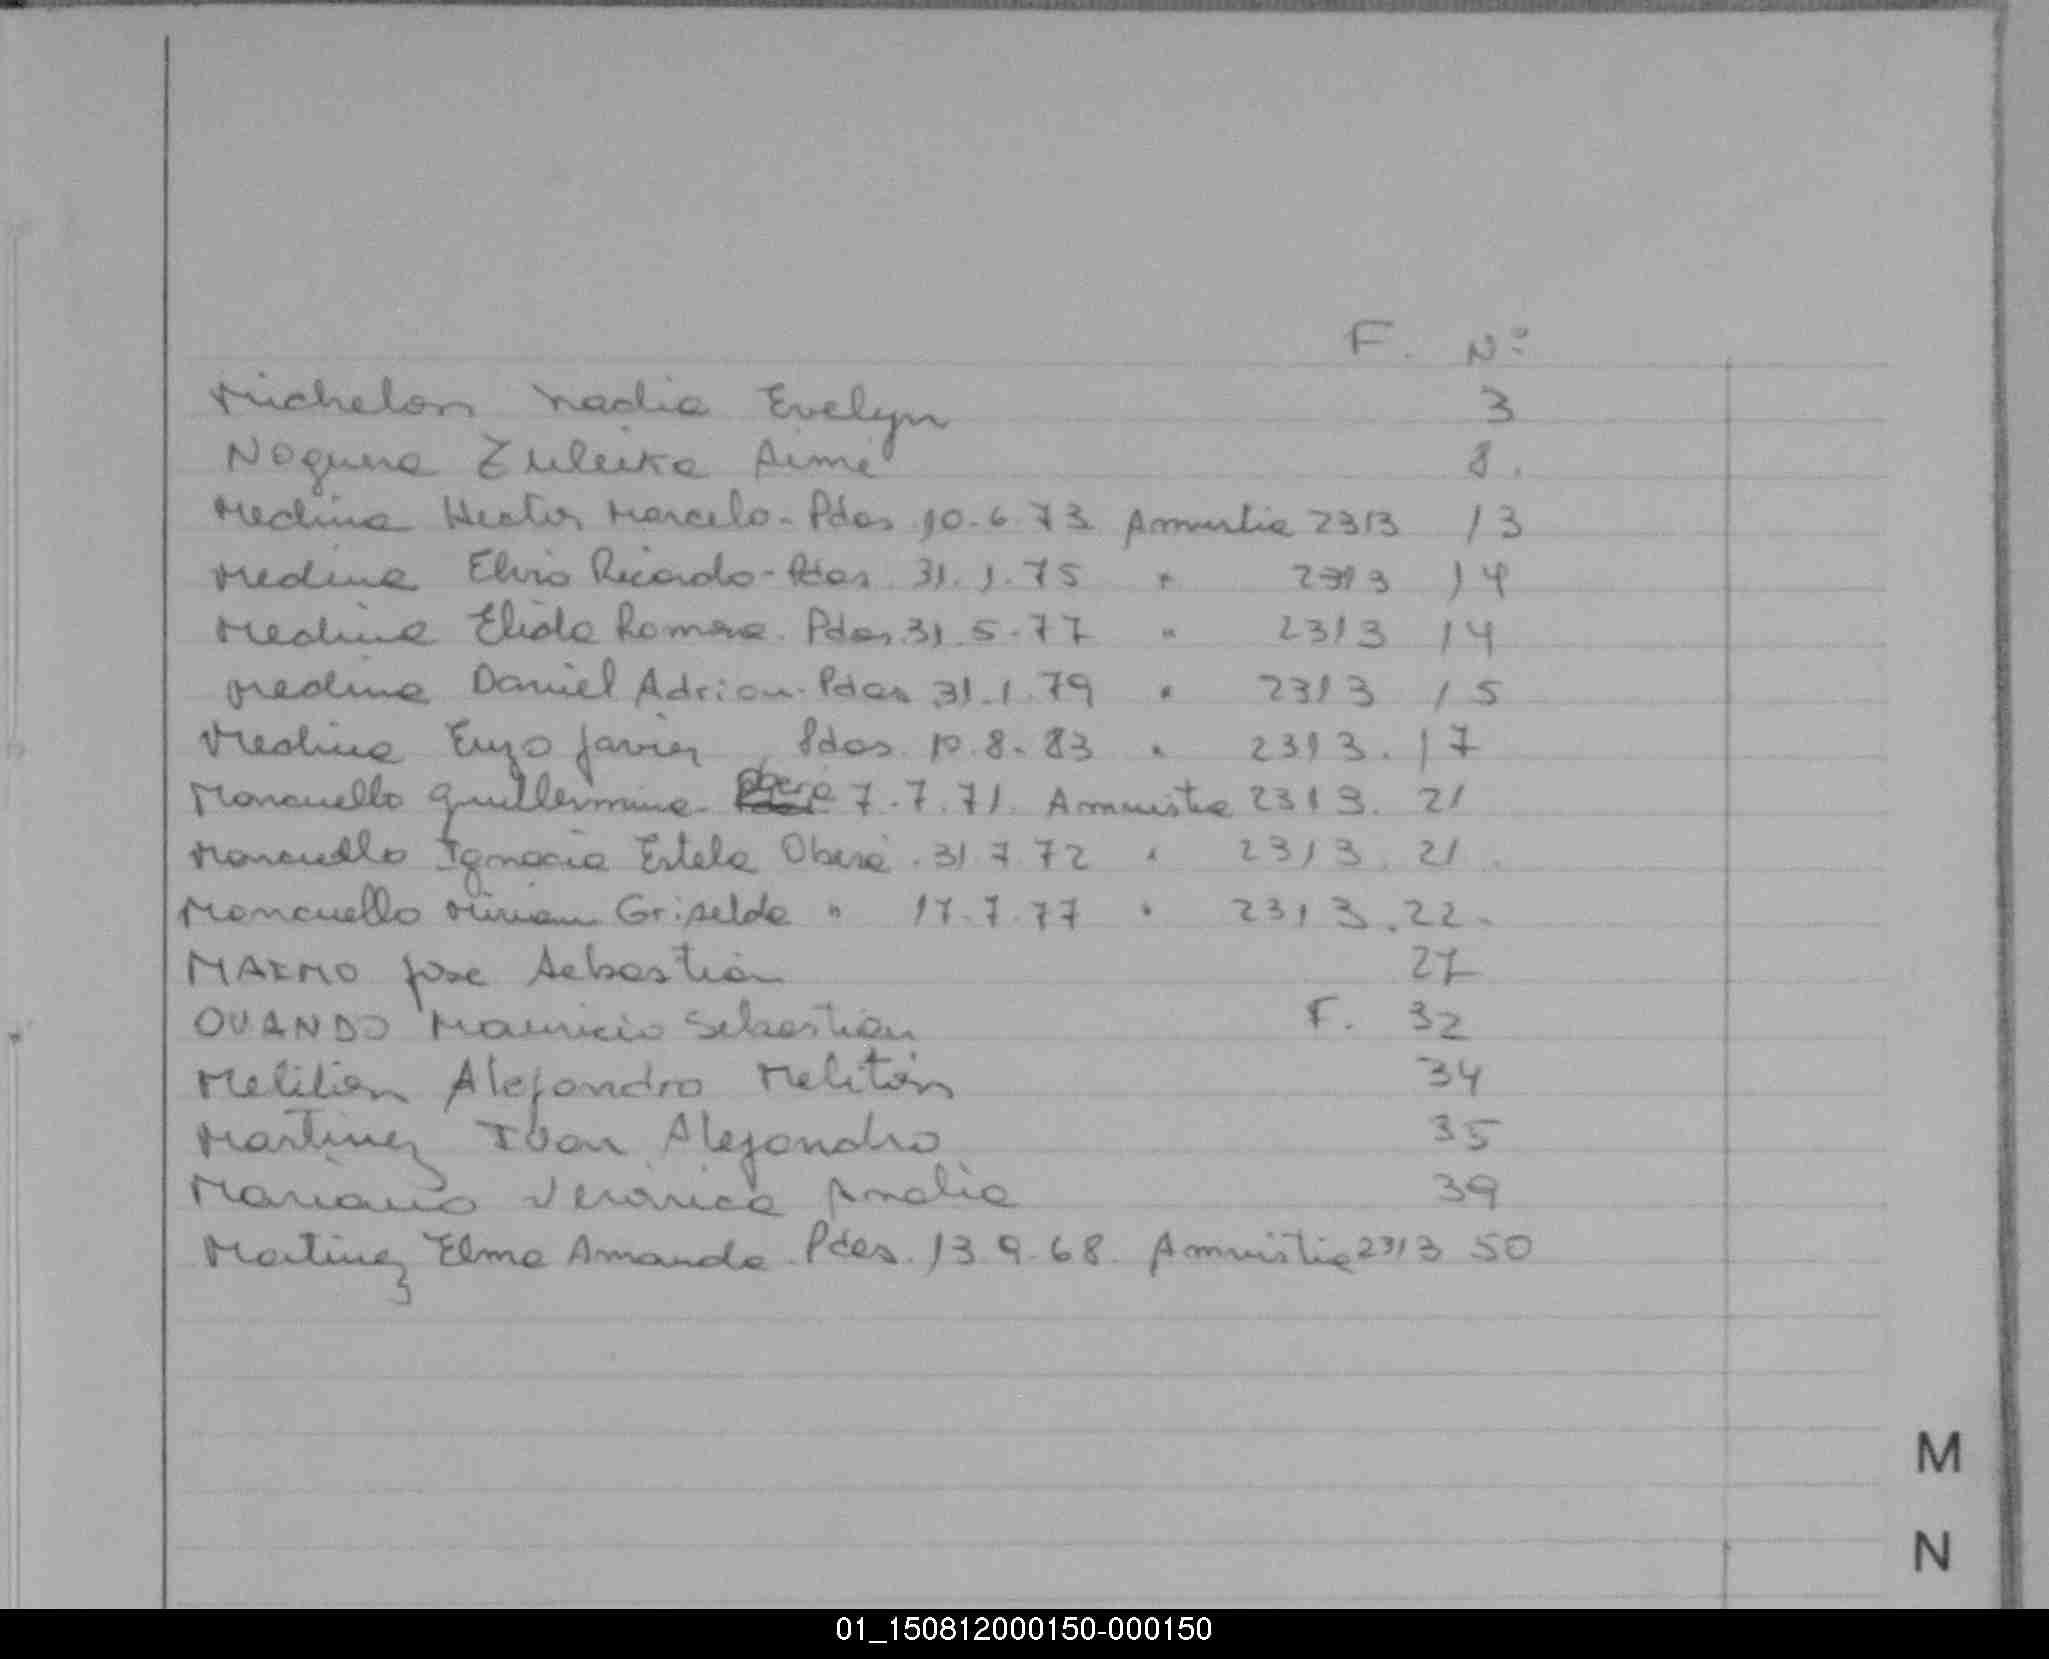 F. Nº
Michelon Nadia Evelyn 3
Noguera Zuleika Aimé 8.
Medina Hector Marcelo - Pdas 10.6.73 Amnistia 2313 13
Medina Elvio Ricardo - Pdas. 31.1.75 " 2313 14
Medina Elida Romina. Pdas 31.5.77 " 2313 14
Medina Daniel Adrian. Pdas 31.1.79 " 2313 15
Medina Enzo Javier Pdas. 10.8.83 " 2313. 17
Mancuello Guillermina Oberá 7.7.71. Amnistia 2313. 21
Mancuello Ignacia Estela Oberá. 31 7 72 " 2313. 21.
Mancuello Miriam Griselda " 17.7.77 " 2313. 22.
José Sebastián 27
OVANDO Mauricio Sebastián F. 32
Alejandro Melitón 34
Martinez Ivan Alejandro 35
Mariano Veronica Analia 39
Martinez Elma Amanda. Pdas. 13.9.68. Amnistia 2313 50
M
N
01_150812000150-000150